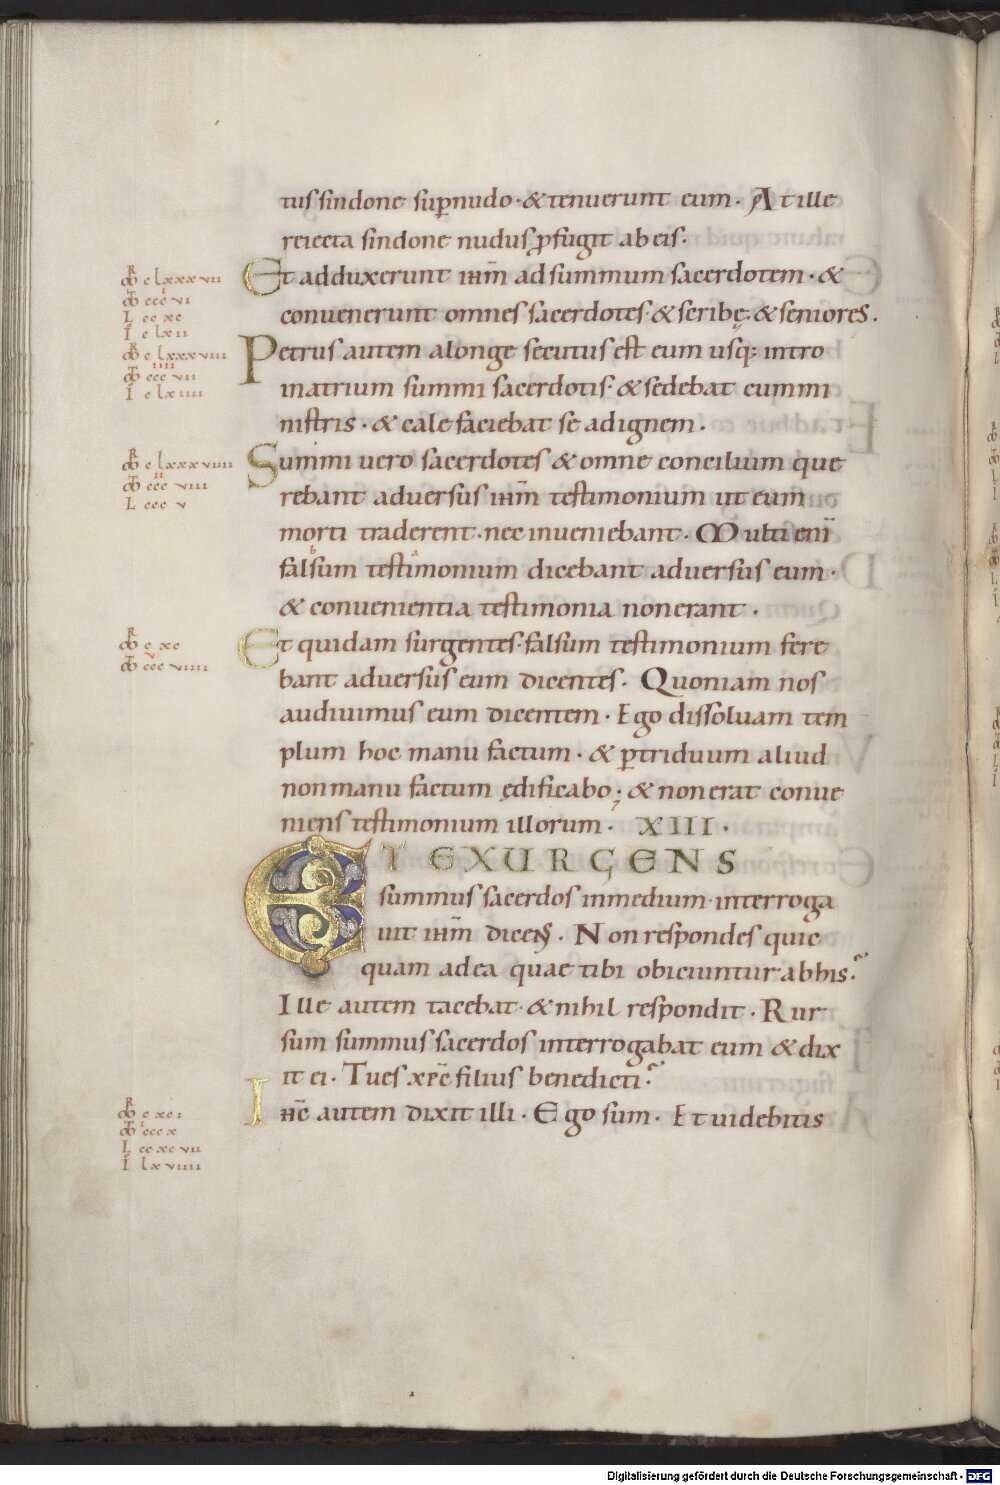 tus sindone sup nudo · & tenuerunt eum · At ille
reiecta sindone nudus ꝓfugit ab eis ·
Et adduxerunt ihm̄ ad summum sacerdotem · &
conuenerunt omnes sacerdotes · & scribę · & seniores .
Petrus autem alonge secutus est eum usq; intro
in atrium summi sacerdotis · & sedebat cum mi
nistris · & cale faciebat se ad ignem .
Summi uero sacerdotes & omne concilium que
rebant aduersus ihm̄ testimonium ut eum
morti traderent · nec inueniebant · Multi eni̅
falsum testimonium dicebant aduersus eum ·
& conuenientia testimonia non erant .
Et quidam surgentes · falsum testimonium fere
bant aduersus eum dicentes · Quoniam nos
audiuimus eum dicentem · Ego dissoluam tem
plum hoc manu factum · & ꝑ triduum aliud
non manu factum ędificabo ; & non erat conue
niens testimonium illorum · XIII ·
ET EXURGENS
summus sacerdos in medium · interroga
uit ihm̄ dicens · Non respondes quic
quam ad ea quae tibi obiciuntur ab his ·
Ille autem tacebat · & nihil respondit · Rur
sum summus sacerdos interrogabat eum & dix
it ei · Tu es xp̅c filius benedicti ·
Ih̅c autem dixit illi · Ego sum · Et uidebitis
c lxxxvii
ccc vi
L cc xc
I c lxii
c lxxxviii
iiii
ccc vii
I c lxiiii
c lxxxviiii
ii
ccc viii
L ccc v
c xc
v
ccc viiii
c xci
i
ccc x
L cc xc vii
I lxviiii
Digitalisierung gefördert durch die Deutsche Forschungsgemeinschaft - DFG